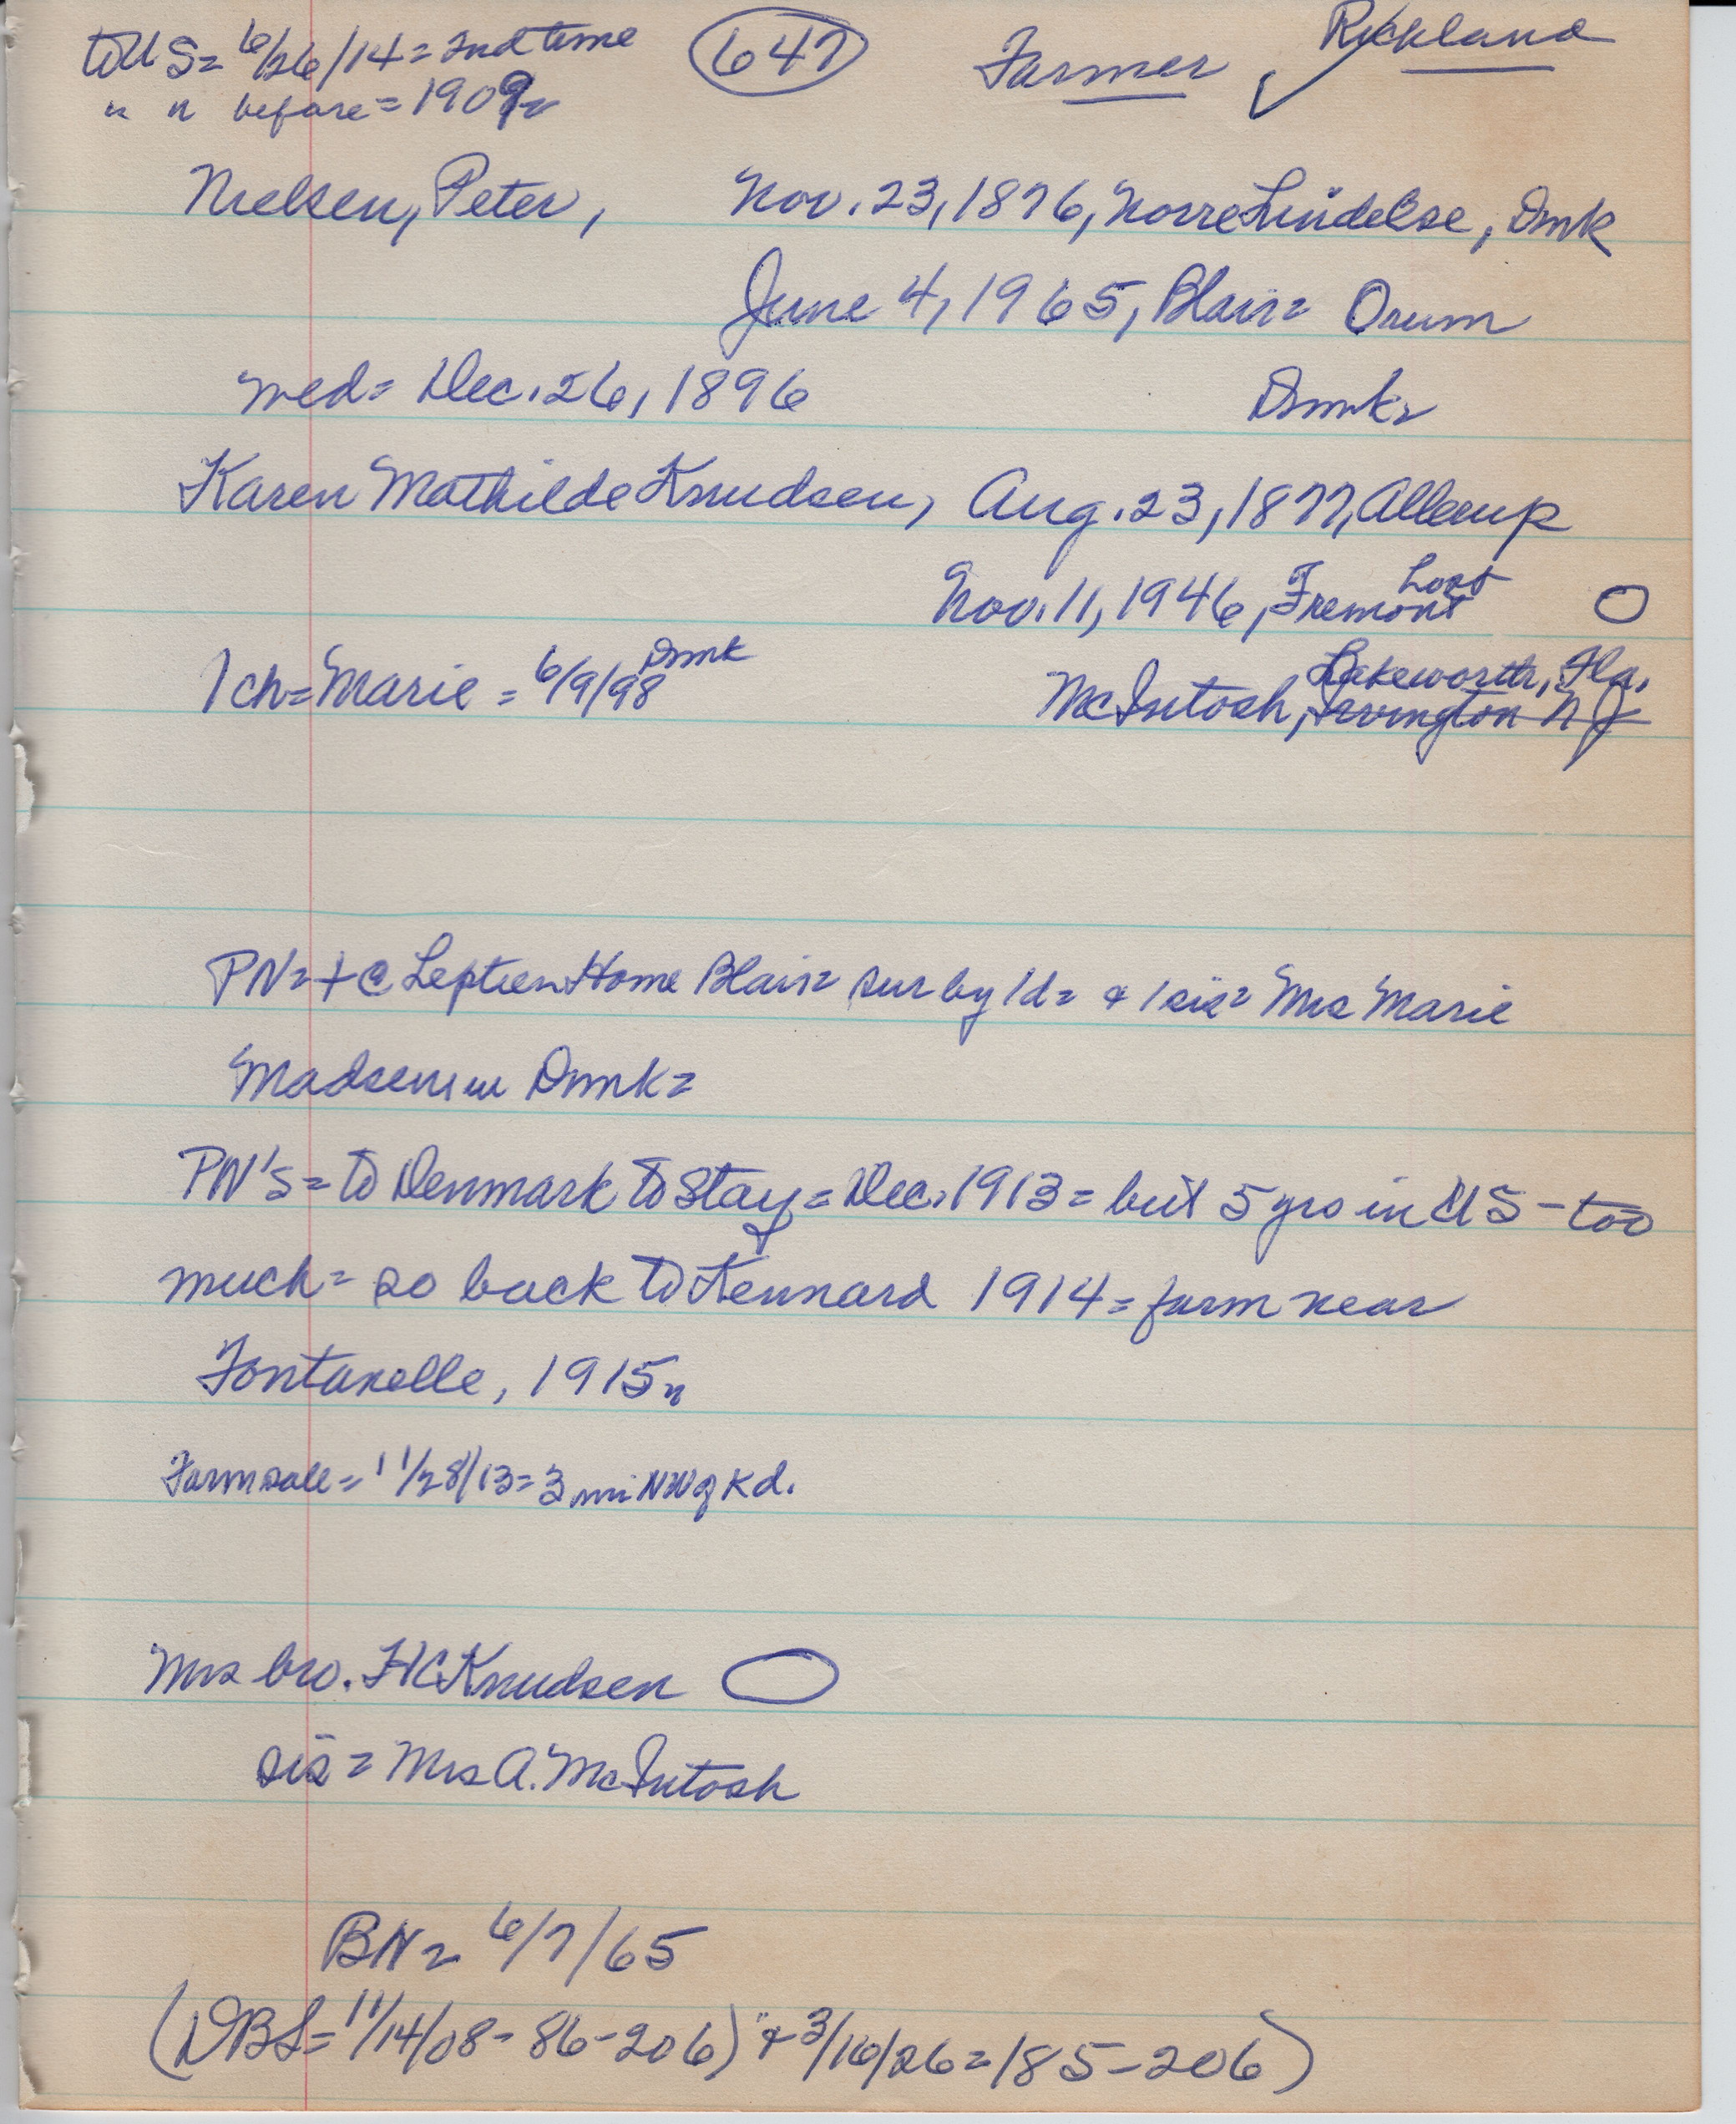 to US= 6/26/14= 2nd time (647) Farmer Richland
" " before = 1909=
Nielsen, Peter, Nov. 23, 1876, Norre Lindelse, Dmk
June 4, 1965, Blair= Orum
med= Dec. 26, 1896 Dmk=
Karen Mathilde Knudsen, Aug. 23, 1877, Allerup
Nov. 11, 1946, Fremont
1 ch= Marie = 6/9/98 Dmk McIntosh, Lakeworth, Fla. Irvington NJ
PN= + @ Leptien Home Blair= sur by 1 d= & 1 sis= Mrs Marie
Madsen, in Dmk=
PN's = to Denmark to stay = Dec. 1913 = but 5 yrs in US - too
much = so back to Kennard 1914 = farm near
Fontanelle, 1915=
Farm sale = 11/28/13= 3 mi NW of Kd.
Mrs bro. HC Knudsen
sis = Mrs A. McIntosh
BN= 6/7/65
(DBS= 11/14/08 - 86 - 206) & 3/16/26 = 185 - 206)